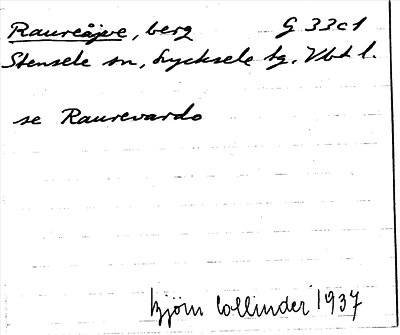 Raureåjvve, berg G 33c1
Stensele sn, Lycksele lg. Vbt l.
se Raurevardo
Björn Collinder 1937